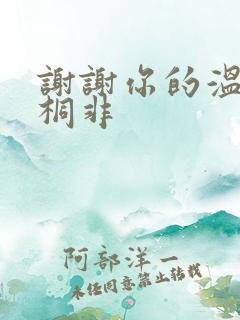 謝謝你的溫
桐非
阿部洋一
未經同意禁止轉載